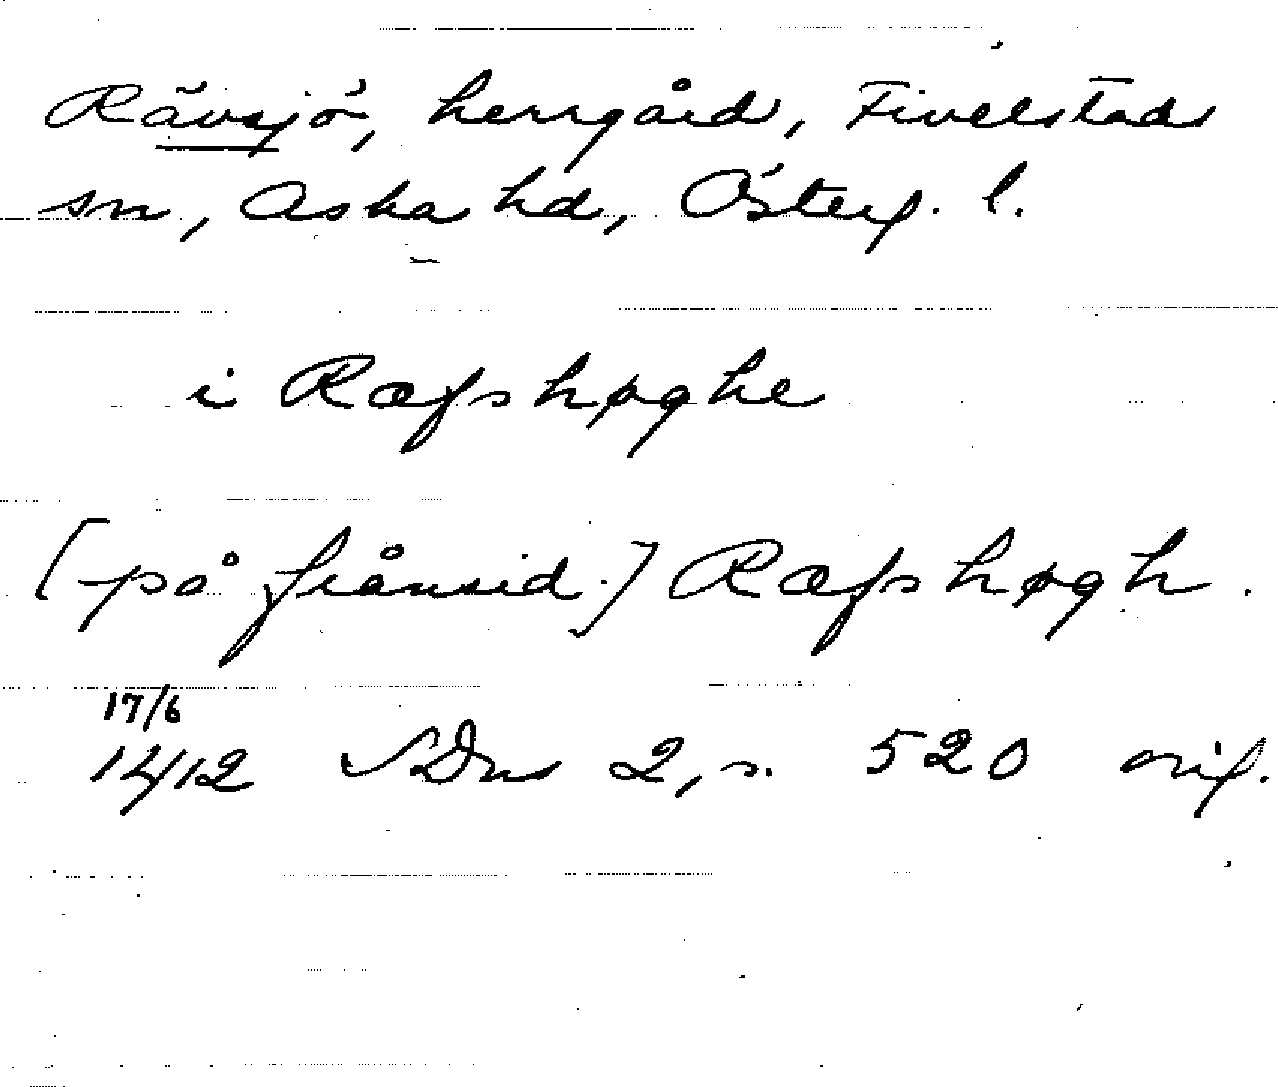 Rävsjö, herrgård, Fivelstad
sn, Aska hd, Österg. l.
i Ræfshøghe
[på frånsid.] Ræfshøgh.
17/6
1412 SDns 2, s. 520 orig.